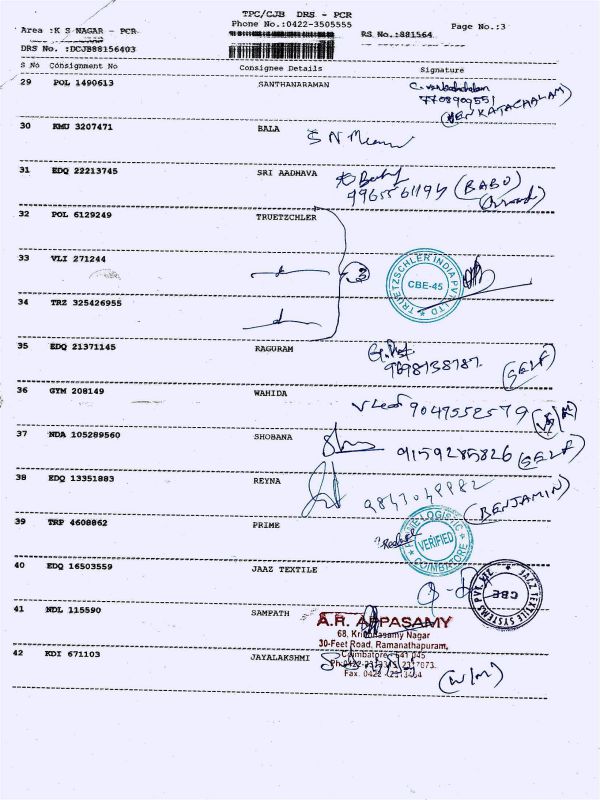 TPC/CJB DRS - PCR
Area :K S NAGAR - PCR Phone No.:0422-3505555 Page No.:3
RS No.:881564
DRS No. :DCJB88156403
S No Consignment No Consignee Details Signature
29 POL 1490613 SANTHANARAMAN
7708909551
(VENKATACHALAM)
30 KMU 3207471 BALA
31 EDQ 22213745 SRI AADHAVA
(BABU)
32 POL 6129249 TRUETZCHLER
33 VLI 271244 3
TRUETZSCHLER INDIA PVT LTD
CBE-45
34 TRZ 325426955
35 EDQ 21371145 RAGURAM
9698138787
(SELF)
36 GYM 208149 WAHIDA
9047552579
37 NDA 105289560 SHOBANA 9159285826 (SELF)
38 EDQ 13351883 REYNA
(BENJAMIN)
39 TRP 4608862 PRIME
PRIME LOGISTIC
VERIFIED
COIMBATORE
40 EDQ 16503559 JAAZ TEXTILE
JAAZ TEXTILE SYSTEMS PVT LTD
CBE
41 NDL 115590 SAMPATH
A.R. APPASAMY
68, Krishnasamy Nagar
30-Feet Road, Ramanathapuram,
Coimbatore - 641 045
42 KDI 671103 JAYALAKSHMI
Fax. 0422
(W/M)